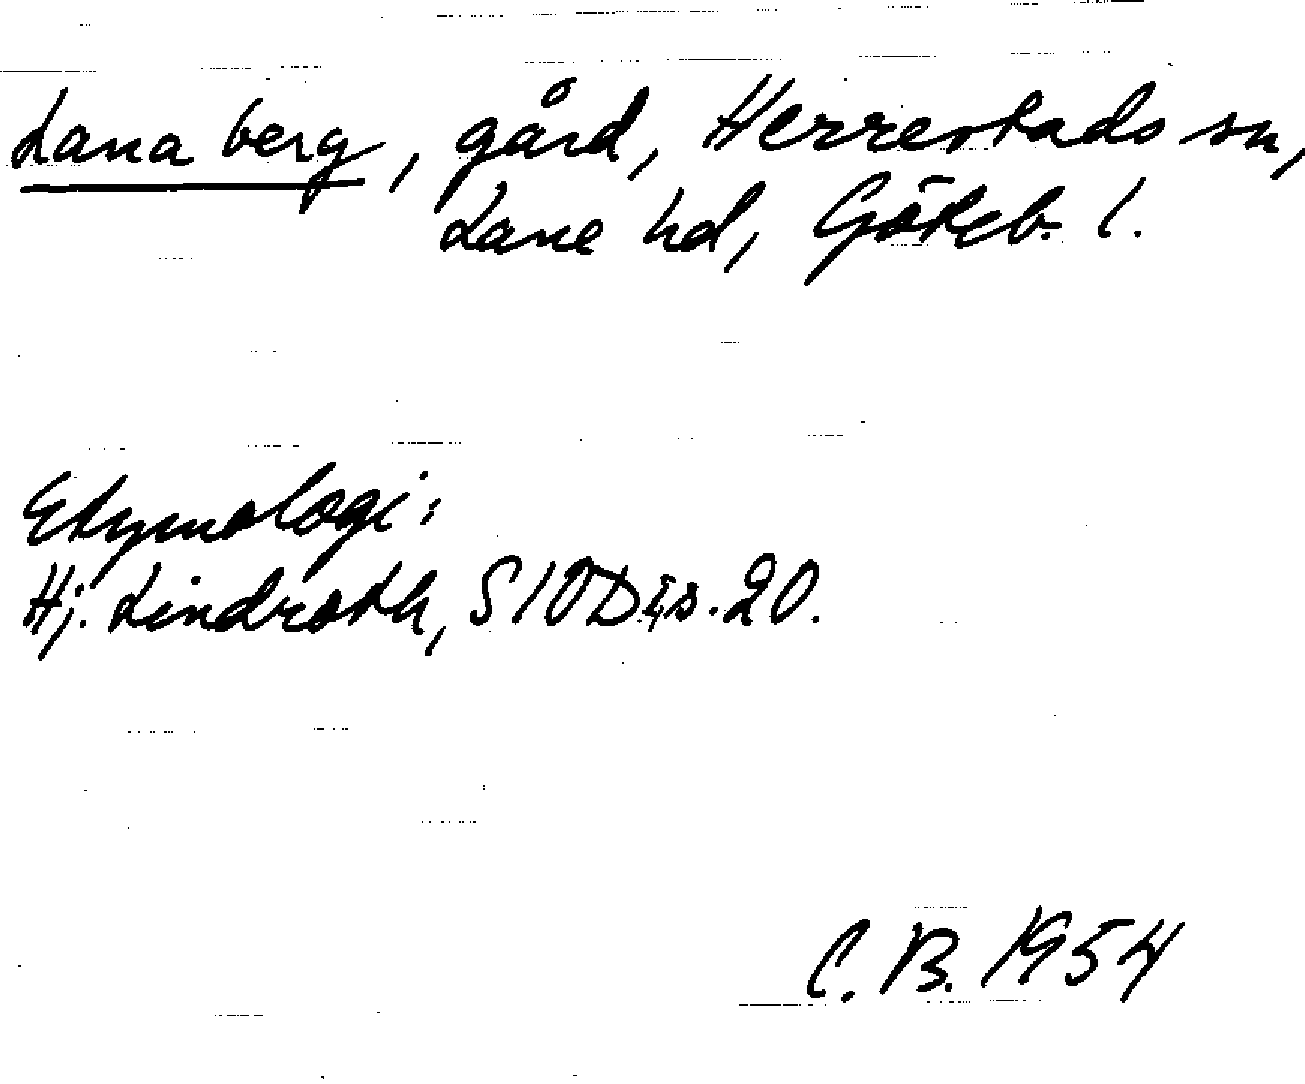 Lanaberg, gård, Herrestads sn,
Lane hd, Göteb. l.
Etymologi:
Hj. Lindroth, SIOD s. 20.
C. B. 1954